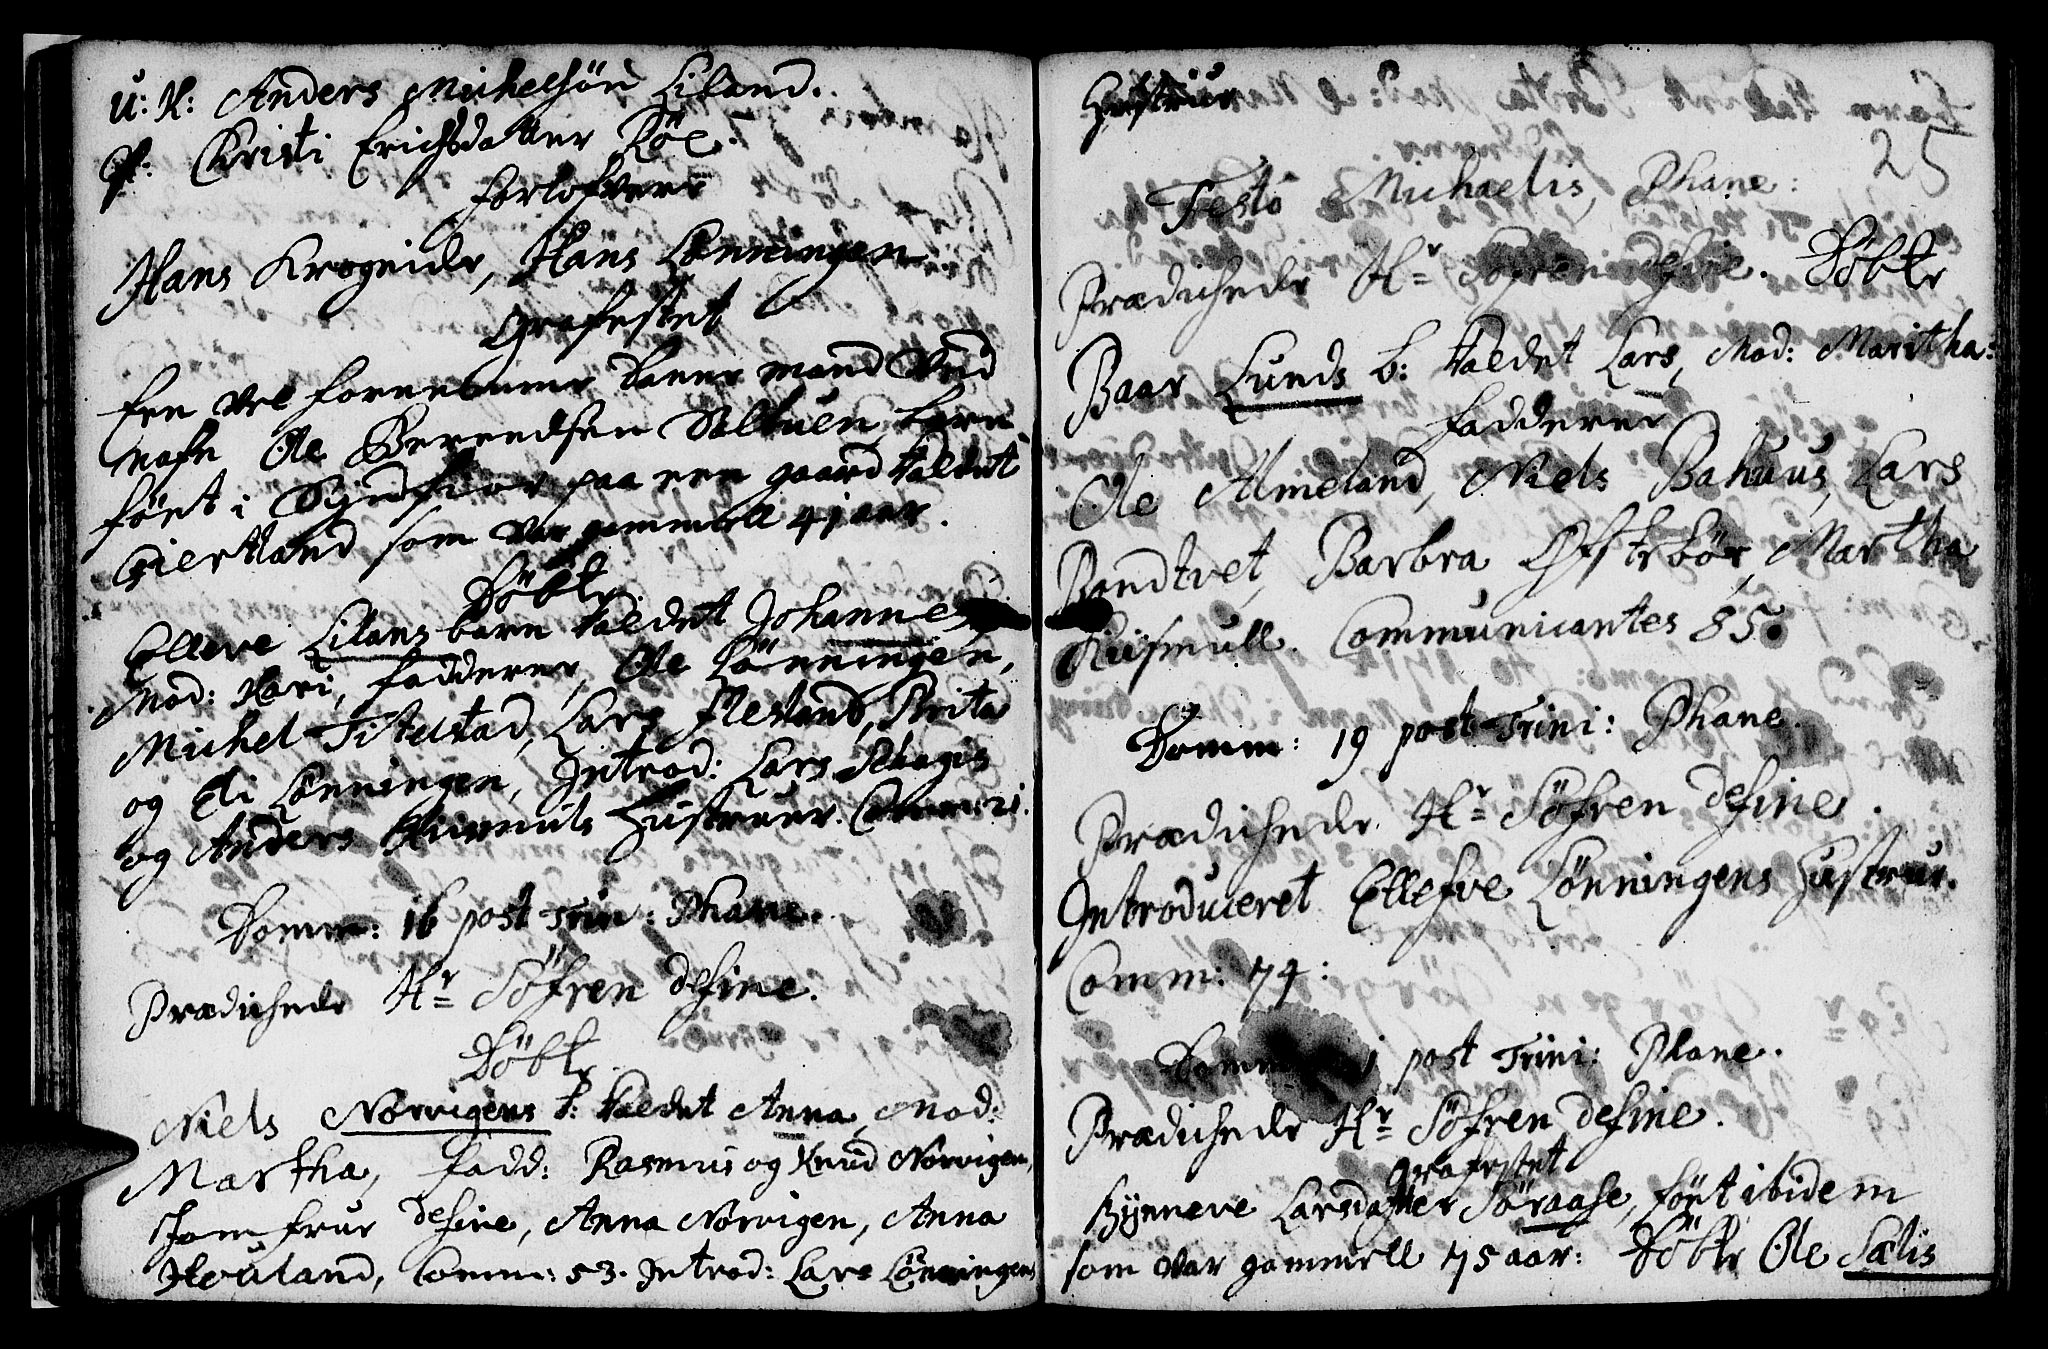 U: K: Anders Michelsön Liland.
P: Kristi Erichsdatter Röe.
forlofvere
Hans Krogeide, Hans Lönningen
Grafestet
Een vel fornemme Danne mand ved
nafn Ole Berendsen baarn
föet i Syndfior paa een gaard kaldet
Giertland som var gammell 41 aar.
Döbte
Elleve Lilans barn kaldet Johannes
Mod: Kari, fadderne, Ole Lönningen,
Michel Titelstad, Lars Flesland, Brita
og Eli Lönningen, Introd: Lars
og Anders Hustruer. Comm: 21.
Domm: 16 post Trin: Phane.
Prædichede Hr Söfren define.
Döbte
Niels Norvigens b: kaldet Anna, Mod:
Martha, fadd: Rasmus og Knud Norvigen,
Jomfrur define, Anna Norvigen, Anna
Houland, Comm: 53. Introd: Lars Lönningens
Hustrur
25
Festo Michaelis, Phane:
Prædichede Hr Söfren define. Döbte
Baar Lunds b: kaldet Lars, Mod: Maritha:
fadderne
Ole Almeland, Niels Bahuus, Lars
Bondtvet, Barbra Öfstebör, Martha
Communicantes 85
Domm: 19 post Trini: Phane.
Prædichede Hr Söfren define.
Introduceret Ellefve Lönningens Hustrur.
Comm: 74:
post Trini: Phane.
Prædichede Hr Söfren define.
Grafestet
Synneve Larsdatter Söraase, föet ibidem
som var gammell 75 aar: Döbte Ole Sælis